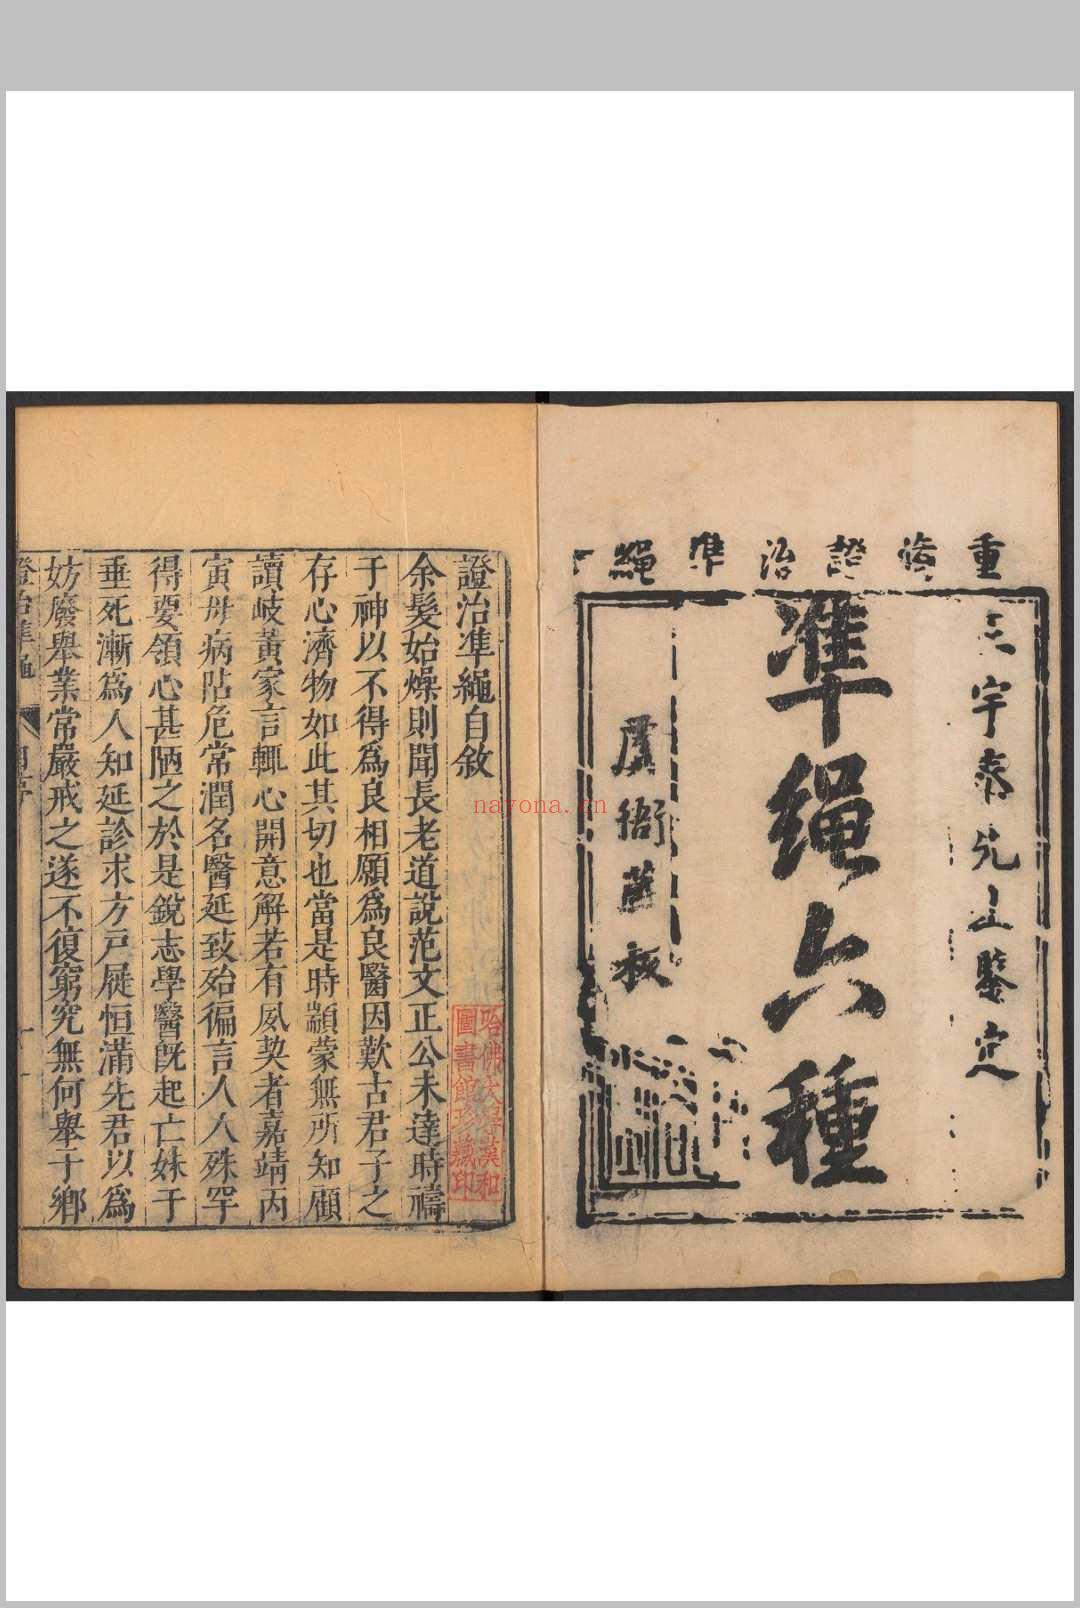 重修證治準繩
王宇泰先生鑒定
準繩六種
虞衙藏板
證治準繩自敘
余髮始燥則聞長老道說范文正公未達時禱
于神以不得為良相願為良醫因歎古君子之
存心濟物如此其切也當是時顓蒙無所知顧
讀岐黃家言輒心開意解若有夙契者嘉靖丙
寅母病阽危常潤名醫延致殆徧言人人殊罕
得要領心甚陋之於是銳志學醫既起亡妹于
垂死漸為人知延診求方戶屣恒滿先君以為
妨廢舉業常嚴戒之遂不復窮究無何舉于鄉
證治準繩
哈佛大學漢和
圖書館珍藏印
nayona.cn